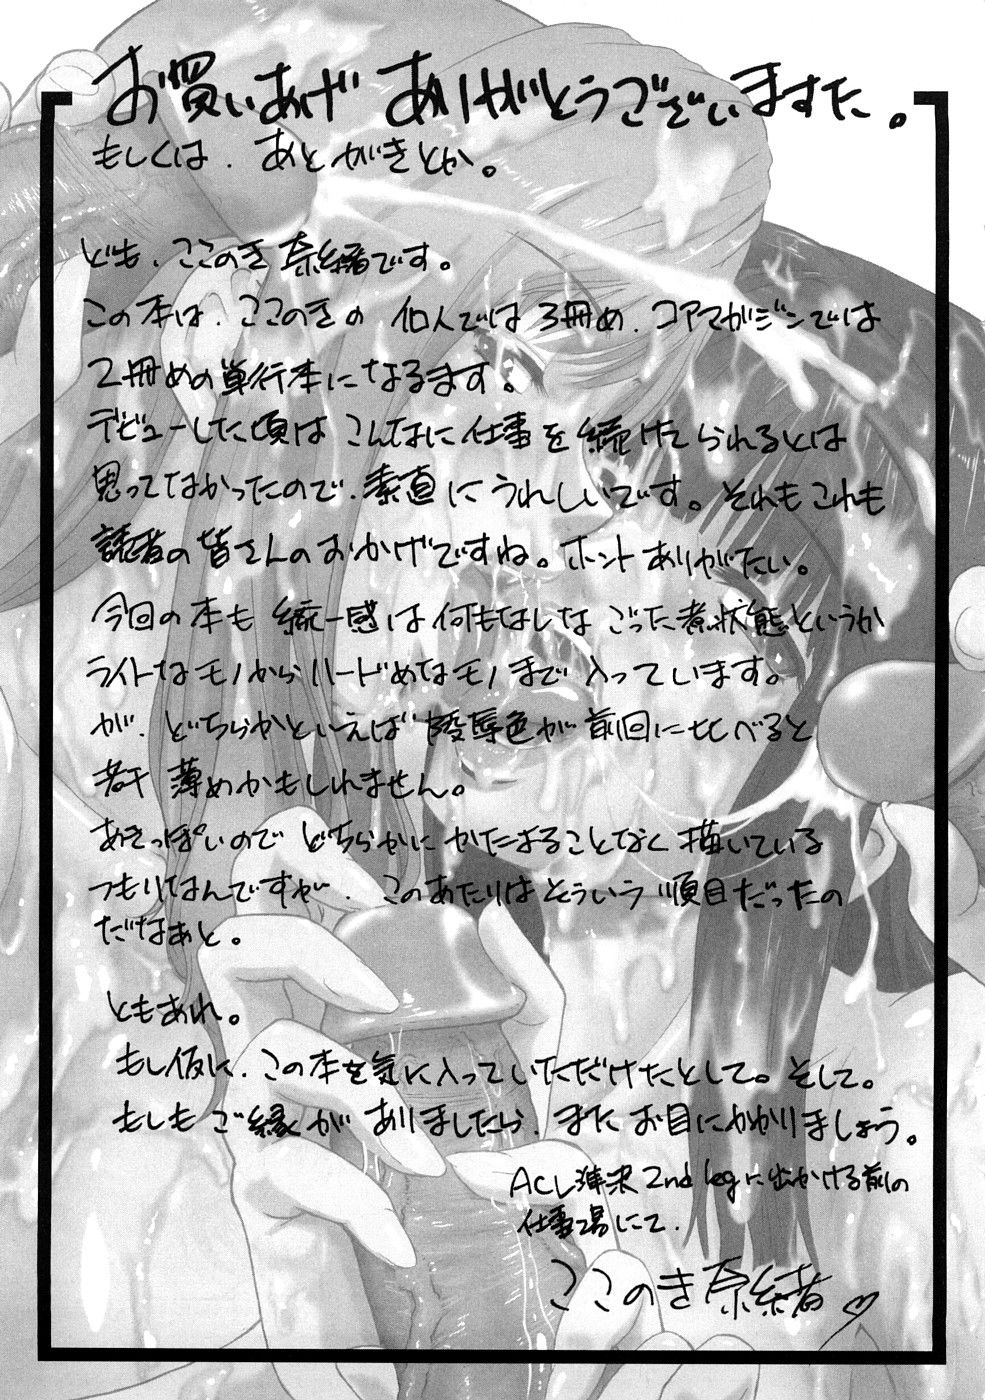 お買いあげ ありがとうございますた。
もしくは、あとがきとか。
ども、ここのき奈緒です。
この本は、ここのきの個人では3冊め、コアマガジンでは
2冊めの単行本になるます。
デビューした頃はこんなに仕事を続けてられるとは
思ってなかったので、素直にうれしいです。それもこれも
読者の皆さんのおかげですね。ホントありがたい。
今回の本も統一感は何もはしな ごった煮状態というか
ライトなモノからハードめなモノまで入っています。
が、どちらかといえば陵辱色が前回に比べると
若干薄めかもしれません。
あきっぽいのでどちらかにかたまることなく描いている
つもりなんですが、このあたりはそういう順目だったの
だなぁと。
ともあれ。
もし仮に、この本を気に入っていただけたとして。そして。
もしもご縁がありましたら、またお目にかかりましょう。
ACL準決2nd legに出かける前の
仕事場にて。
ここのき奈緒♡